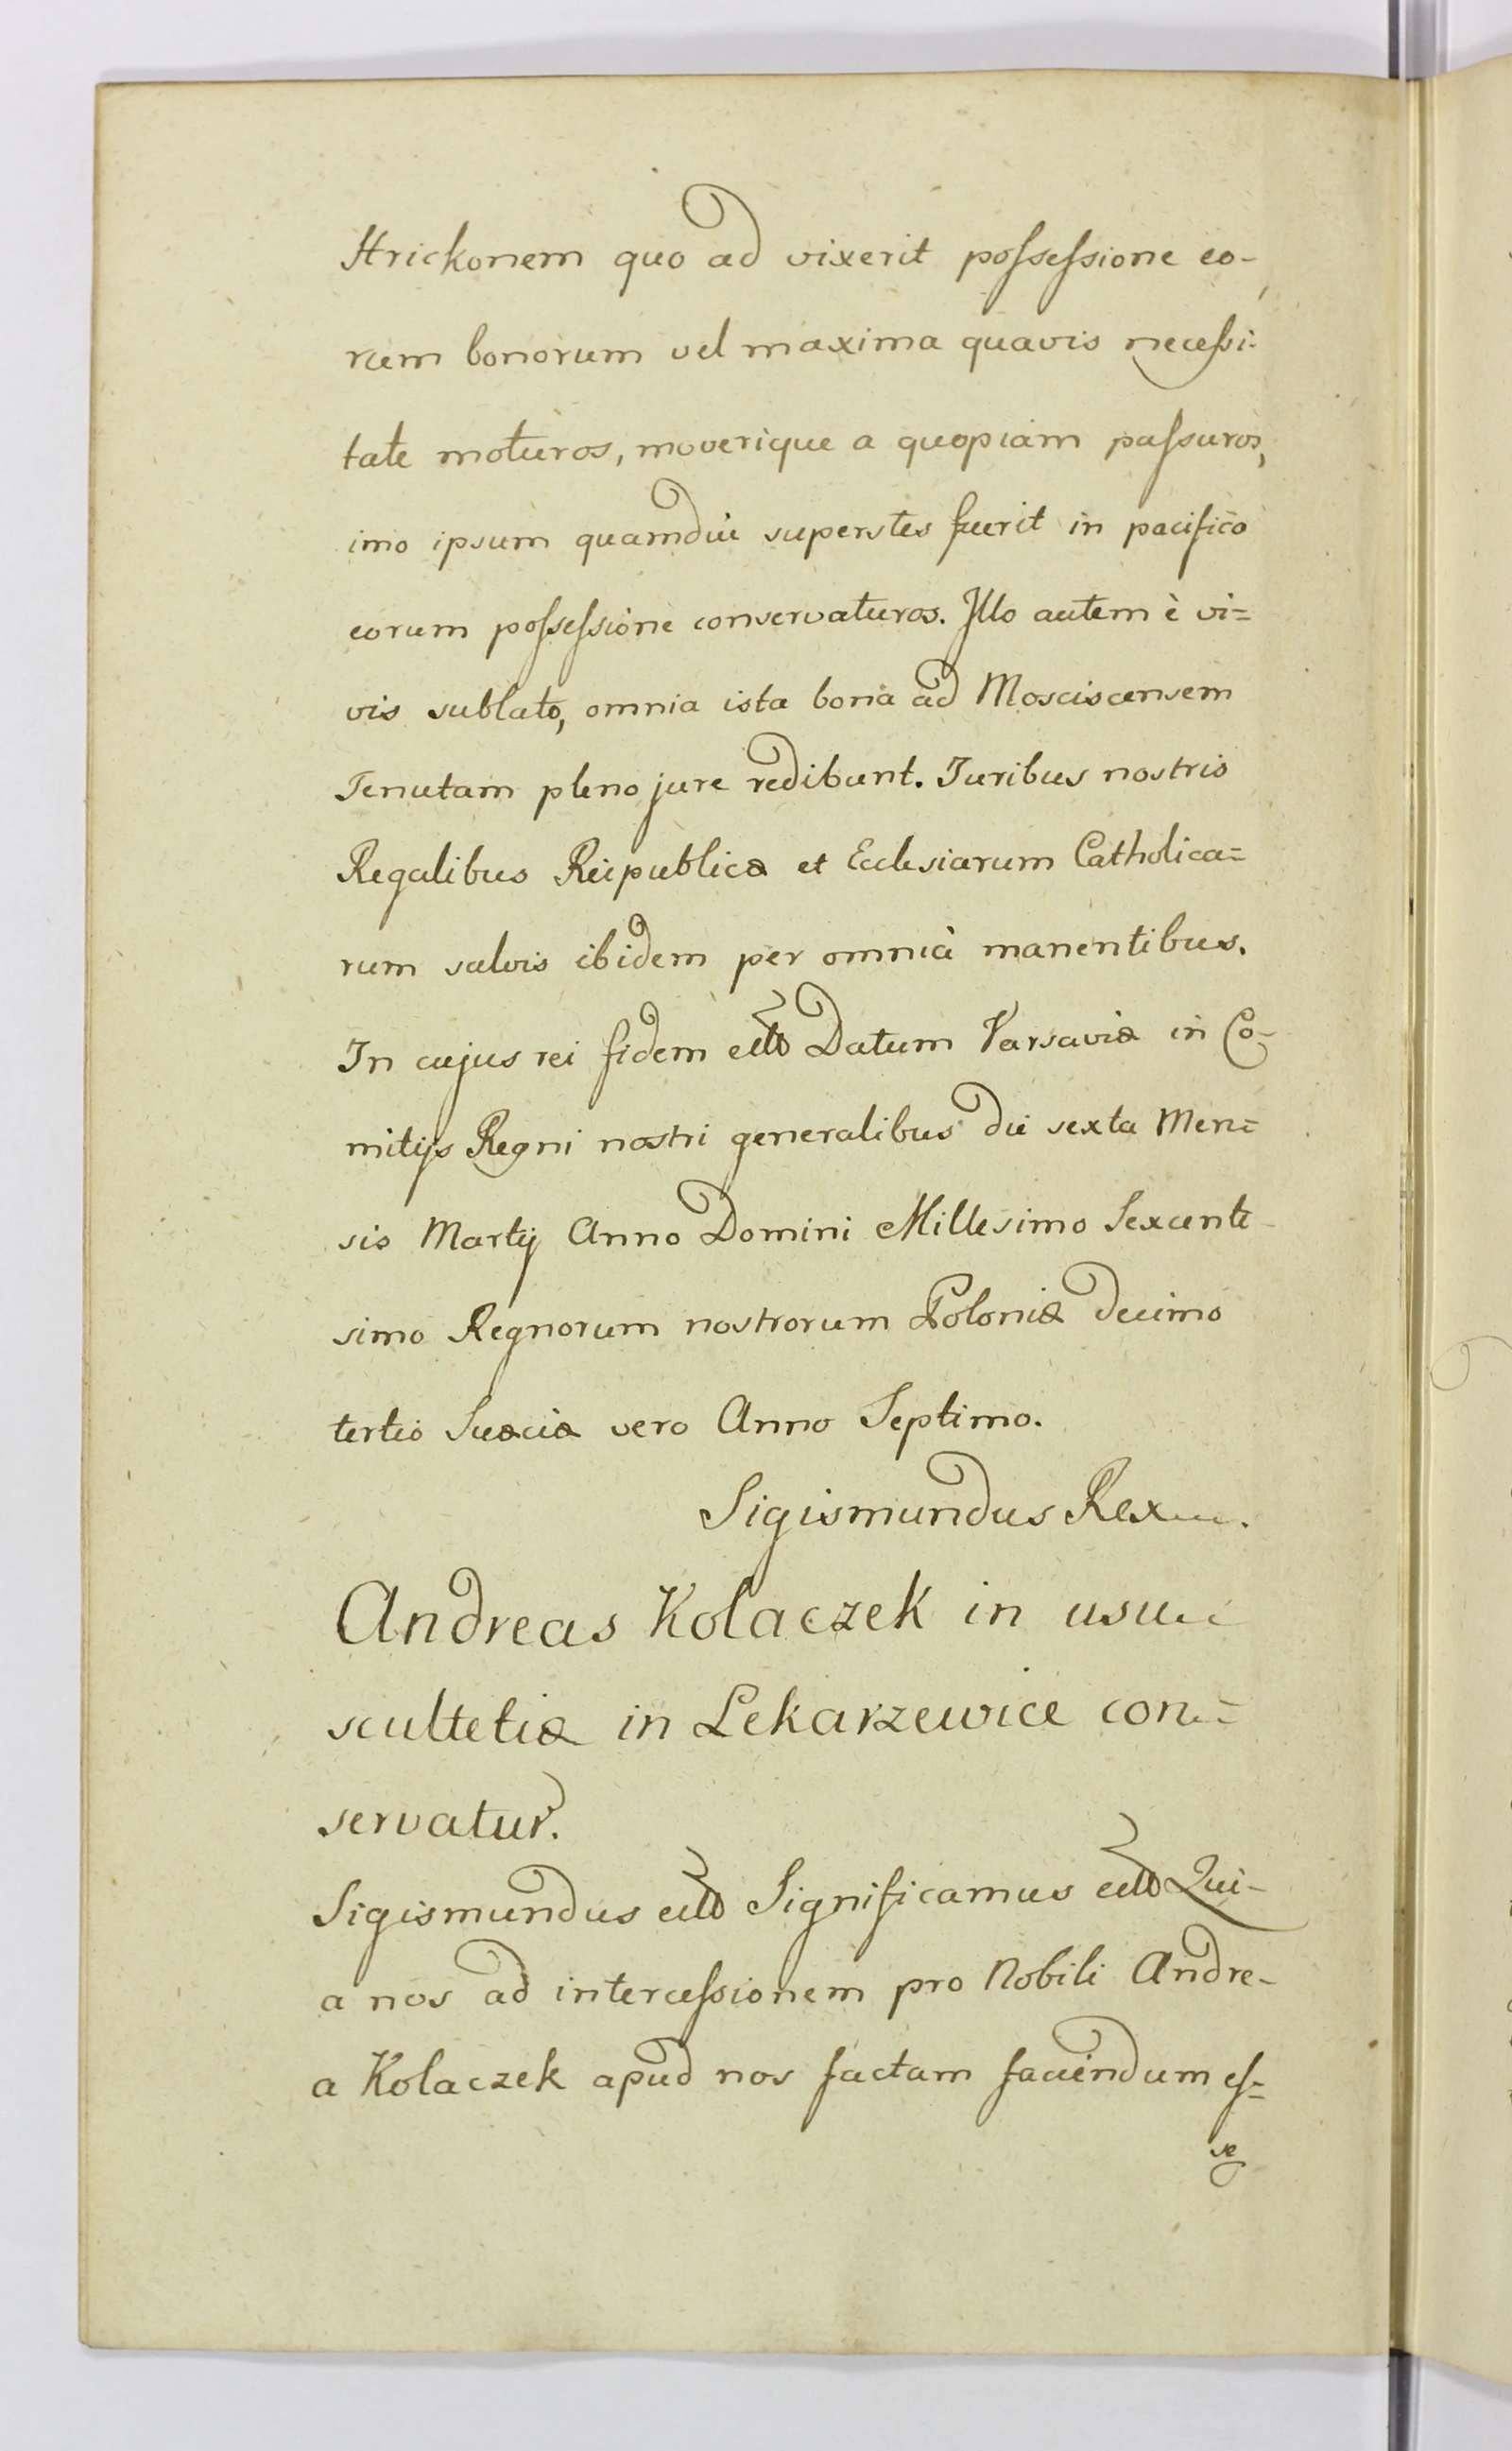 Hrickonem quo ad vixerit possessione eo-
rum bonorum vel maxima quavis necessi-
tate moturos, moverique a quopiam passuros,
imo ipsum quamdiu superstes fuerit in pacifico
eorum possessione conservaturos. Illo autem è vi=
vis sublato, omnia ista bona ad Mosciscensem
Tenutam pleno jure redibunt. Juribus nostris
Regalibus Reipublicæ et Ecclesiarum Catholica=
rum salvis ibidem per omnia manentibus.
In cujus rei fidem Datum Varsaviæ in Co-
mitijs Regni nostri generalibus die sexta Men=
sis Martij Anno Domini Millesimo Sexcente-
simo Regnorum nostrorum Poloniæ decimo
tertio Sueciæ vero Anno Septimo.
Sigismundus Rex
Andreas Kolaczek in usu
scultetiæ in Lekarzewice con=
servatur.
Sigismundus Significamus Qui-
a nos ad intercessionem pro Nobili Andre-
a Kolaczek apud nos factam faciendum es=
se